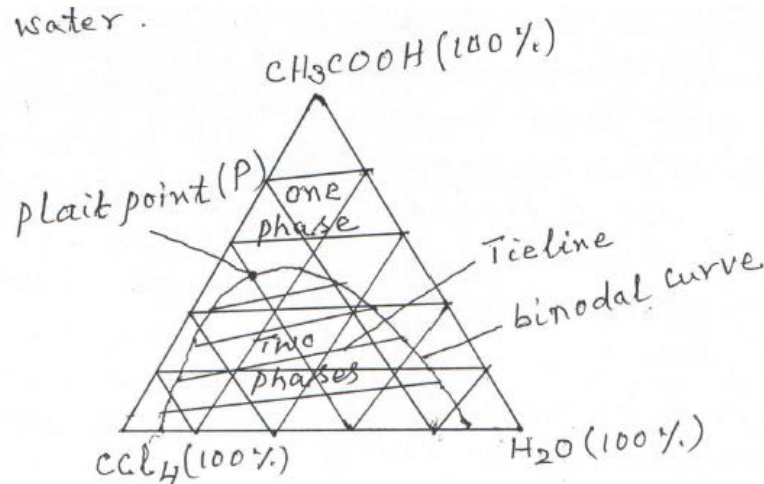 water.
CH3COOH (100%)
Plait point (P)
one
phase
Tieline
binodal curve
Two
phases
CCl4 (100%)
H2O (100%)